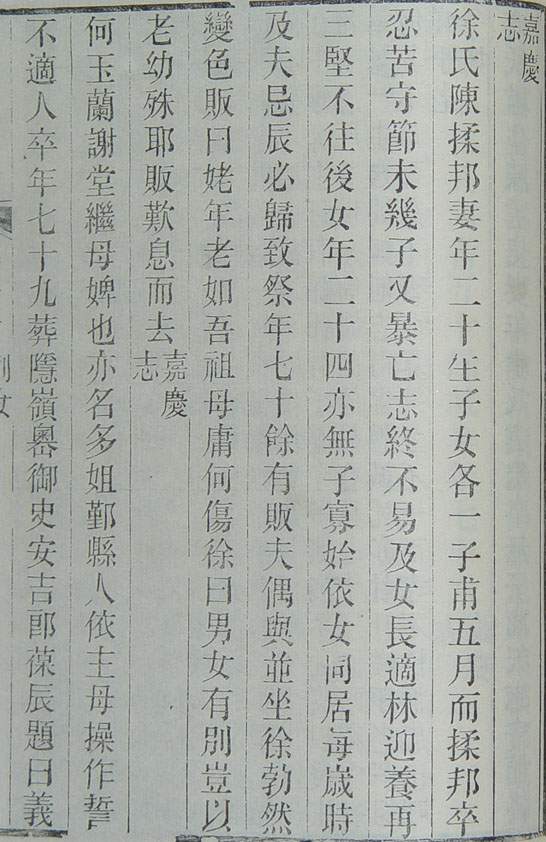 嘉慶
志
徐氏陳揉邦妻年二十生子女各一子甫五月而揉邦卒
忍苦守節未幾子又暴亡志終不易及女長適林迎養再
三堅不往後女年二十四亦無子寡始依女同居每歲時
及夫忌辰必歸致祭年七十餘有販夫偶與並坐徐勃然
變色販曰姥年老如吾祖母庸何傷徐曰男女有別豈以
老幼殊耶販歎息而去嘉慶
志
何玉蘭謝堂繼母婢也亦名多姐鄞縣人依主母操作誓
不適人卒年七十九葬隱嶺墨御史安吉郎葆辰題曰義
列女